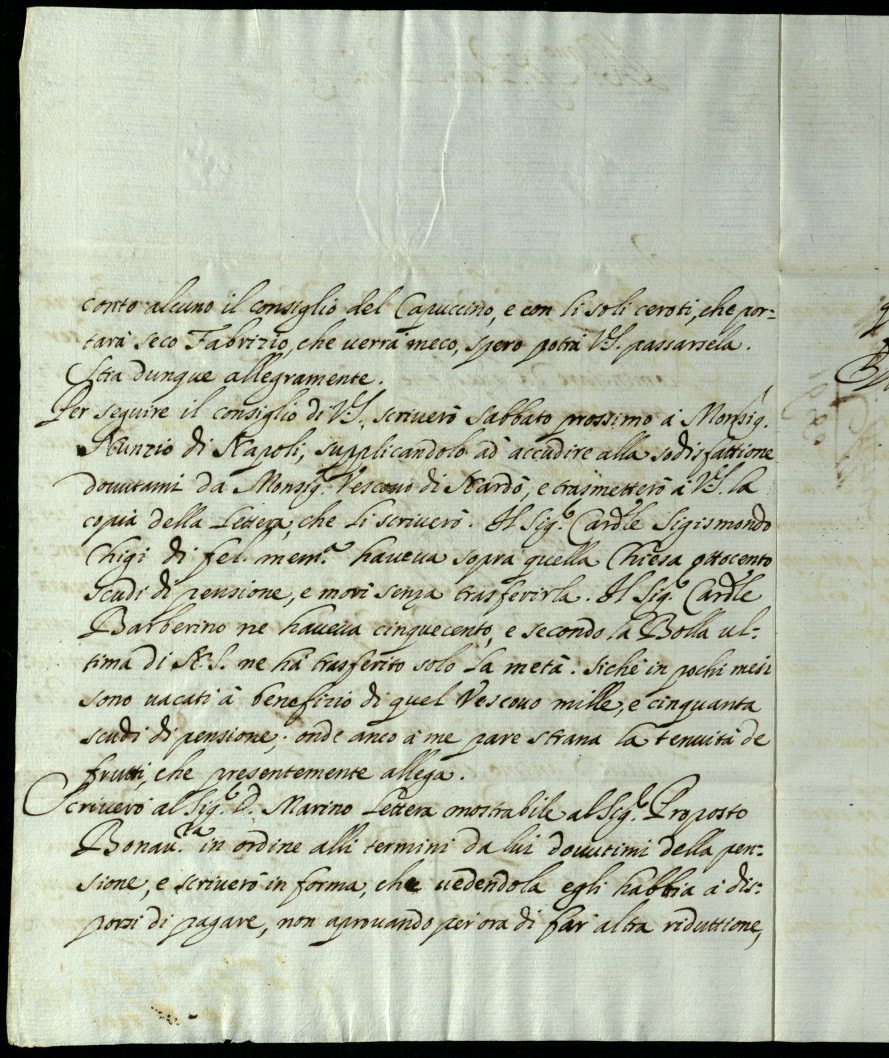 conto alcuno il consiglio del Capuccino, e con li soli ceroti, che por=
tarà seco Fabrizio, che uerrà meco, spero potrà V.S. passarsela.
Stia dunque allegramente.
Per seguire il consiglio di V.S. scriuerò sabbato prossimo à Monsig.
Nunzio di Napoli, supplicandolo ad accudire alla sodisfattione
douutami da Monsig.r Vescouo di Nardò, e trasmetterò à V.S. la
copia della Lettera, che li scriuerò. Il Sig.r Cardle Sigismondo
Chigi di fel. mem.a haueua sopra quella Chiesa ottocento
scudi di pensione, e morì senza trasferirla. Il Sig.r Cardle
Barberino ne haueua cinquecento, e secondo la Bolla ul=
tima di N.S. ne hà trasferito solo la metà: siche in pochi mesi
sono uacati à benefizio di quel Vescouo mille, e cinquanta
scudi di pensione; onde anco à me pare strana la tenuità de
frutti, che presentemente allega.
Scriuerò al Sig.r D. Marino Lettera mostrabile al Sig.r Proposto
Bonau.ra in ordine alli termini da lui douutimi della pen=
sione, e scriuerò in forma, che uedendola egli habbia à dis=
porsi di pagare, non aprouando per ora di far altra riduttione,